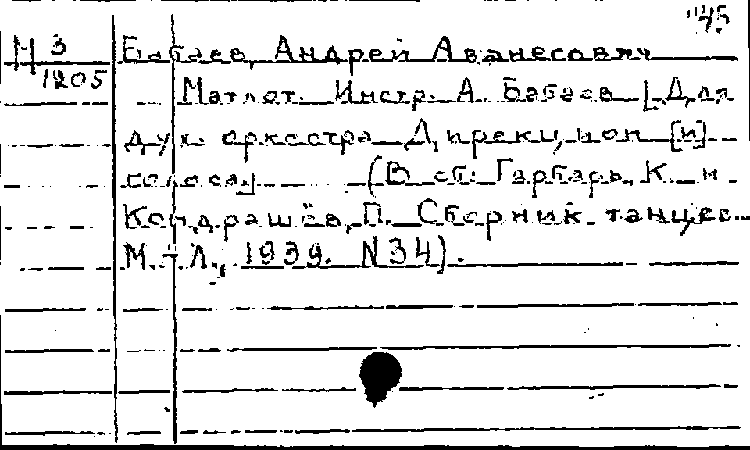 45
М 3 Бабаев, Андрей Аванесович
1205
Матлот. Инстр. А. Бабаев [Для
дух. оркестра. Дирекцион [и]
голоса]. (В сб: Гарбарь, К. и
Кондрашёв, П. Сборник танцев.
М.-Л., 1939. N34).